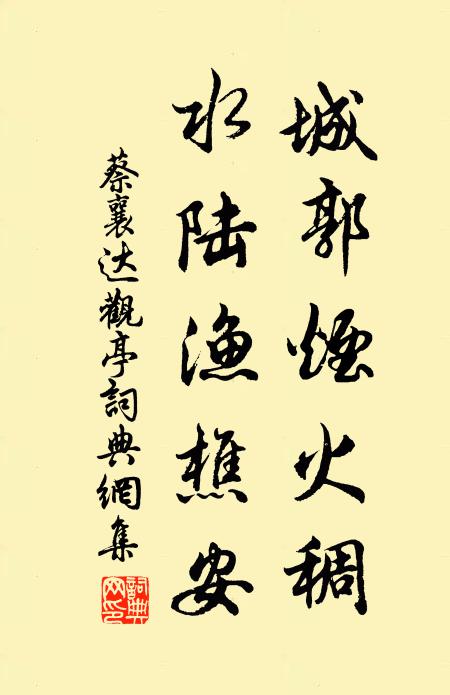 城郭煙火稠
水陆漁樵安
蔡襄达觀亭詞典網集
詞典网印